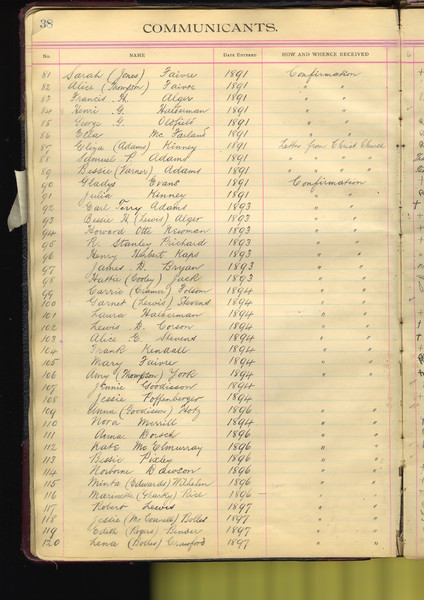 38
COMMUNICANTS.
No. NAME DATE ENTERED HOW AND WHENCE RECEIVED
81 Sarah (Jones) Faivre 1891 Confirmation
82 Alice (Thompson) Faivre 1891 " "
83 Francis H. Alger 1891 " "
84 Henri G. Halderman 1891 " "
85 George G. Oldfield 1891 " "
86 Ella Mc Farland 1891 " "
87 Eliza (Adams) Kinney 1891 Letter from Christ Church
88 Samuel P. Adams 1891 " " " "
89 Bessie (Varner) Adams 1891 " " " "
90 Gladys Evans 1891 Confirmation
91 Julia Kinney 1891 " "
92 Carl Terry Adams 1893 " "
93 Bessie H (Lewis) Alger 1893 " "
94 Howard Otte Newman 1893 " "
95 R. Stanley Prichard 1893 " "
96 Henry Herbert Kaps 1893 " "
97 James D. Bryan 1893 " "
98 Hattie (Cooley) Jack 1893 " "
99 Carrie (Cramer) Folsom 1894 " "
100 Garnet (Lewis) Stevens 1894 " "
101 Laura Halderman 1894 " "
102 Lewis D. Corson 1894 " "
103 Alice E Stevens 1894 " "
104 Frank Kendall 1894 " "
105 Mary Faivre 1894 " "
106 Amy (Thompson) York 1894 " "
107 Jennie Goodisson 1894
108 Jessie Poffenberger 1894
109 Anna (Goodisson) Hotz 1896 " "
110 Nora Merrill 1894 " "
111 Anna Dorsch 1896 " "
112 Kate Mc Elmurray 1896 " "
113 Bessie Pixley 1896 " "
114 Norborne Dawson 1896 " "
115 Minta (Edwards) Wilhelm 1896 " "
116 Marinette (Sharky) Rise 1896 " "
117 Robert Lewis 1897 " "
118 Jessie (Mc Connell) Bolles 1897 " "
119 Edith (Rogers) Bender 1897 " "
120 Lena (Bodes) Crawford 1897 " "